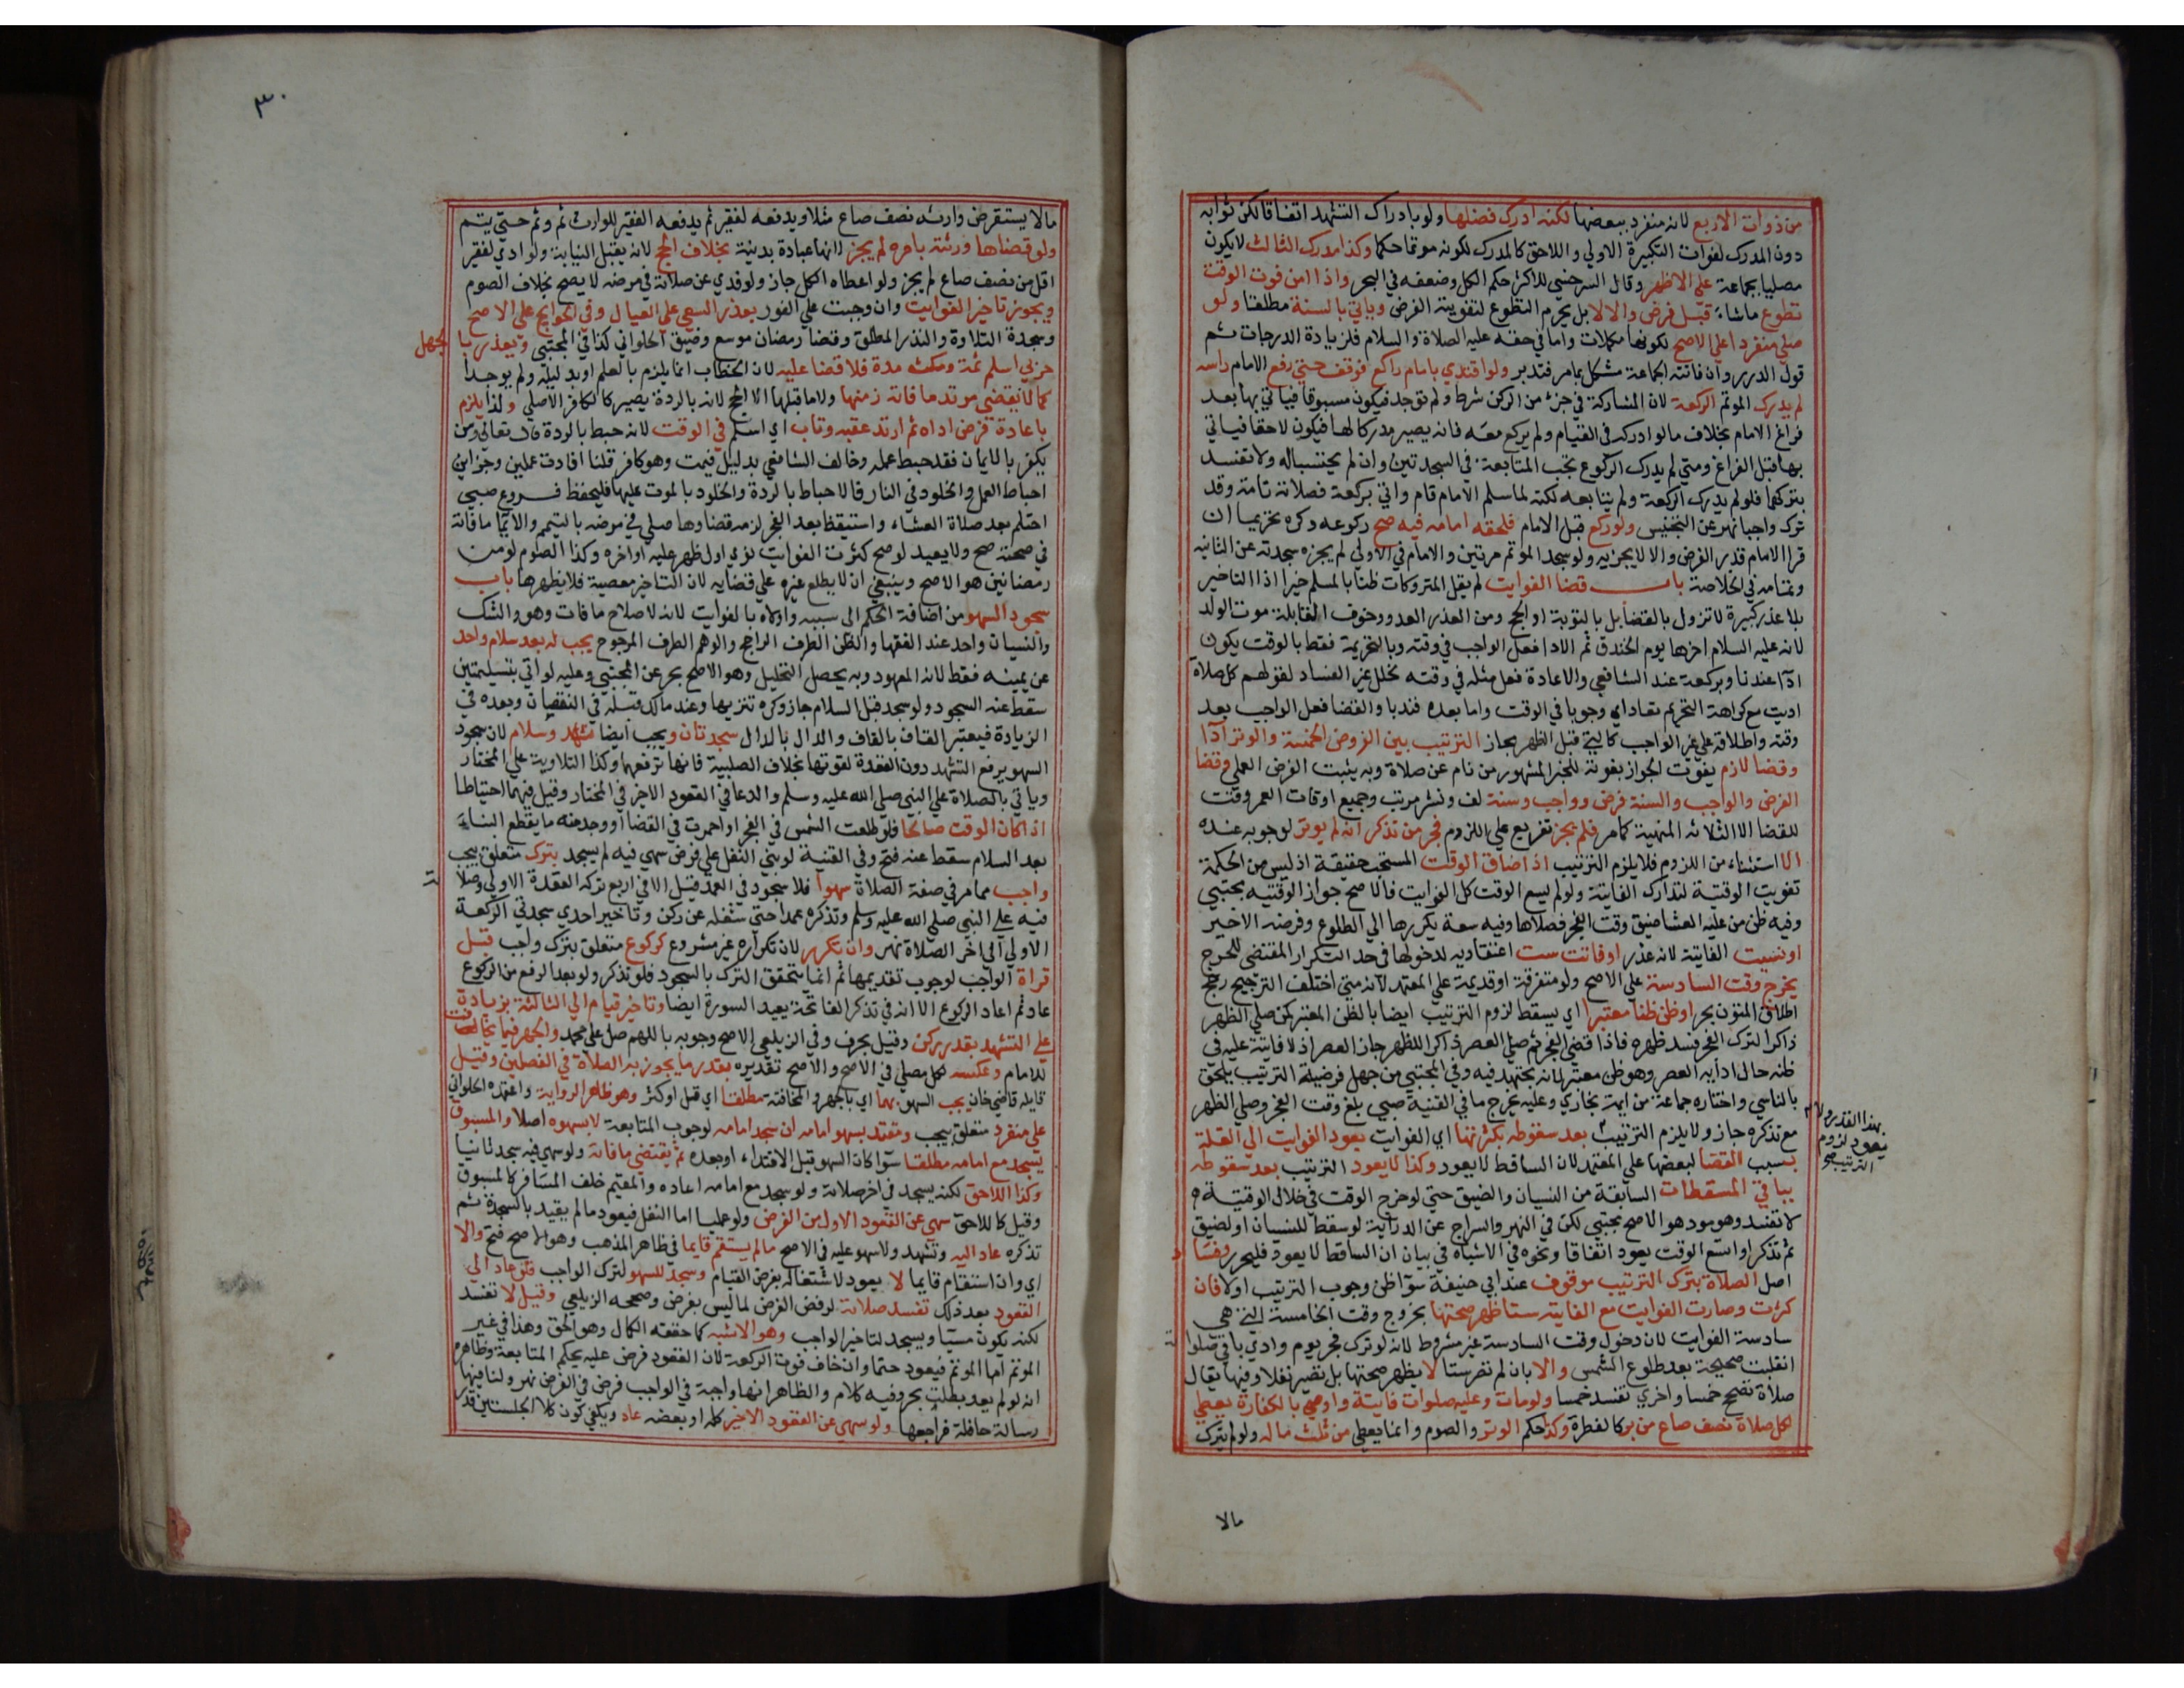 من ذوات الاربع لانه منفرد ببعضها لكنه ادرك فضلها ولو بادراك التشهد اتفاقا لكن ثوابه
دون المدرك لفوات التكبيرة الاولي واللاحق كالمدرك لكونه موتما حكما وكذا مدرك الثالث لا يكون
مصليا بجماعة علي الاظهر وقال السرخسي للاكثر حكم الكل وضعفه في البحر واذا امن فوت الوقت
تطوع ماشاء قبل فرض والا لا بل يحرم التطوع لتفويته الفرض وياتي بالسنة مطلقا ولو
صلي منفردا علي الاصح لكونها مكملات واما في حقه عليه الصلاة والسلام فلزيادة الدرجات ثم
قول الدرر وان فاتته الجماعة مشكل بما مر فتدبر ولو اقتدي بامام راكع فوقف حتي رفع الامام راسه
لم يدرك الموتم الركعة لان المشاركة في جزء من الركن شرط ولم توجد فيكون مسبوقا فياتي بها بعد
فراغ الامام بخلاف مالو ادركه في القيام ولم يركع معه فانه يصير مدركا لها فيكون لاحقا فياتي
بها قبل الفراغ ومتي لم يدرك الركوع تجب المتابعة في السجدتين وان لم يحتسبا له ولا تفسد
بتركهما فلو لم يدرك الركعة ولم يتابعه لكنه لما سلم الامام قام واتي بركعة فصلاته تامة وقد
ترك واجبا نهر عن التجنيس ولو ركع قبل الامام فلحقه امامه فيه صح ركوعه وكره تحريما ان
قرا الامام قدر الفرض والا لا يجزيه ولو سجد الموتم مرتين والامام في الاولي لم يجزه سجدته عن الثانيه
وتمامه في الخلاصة باب قضا الفوايت لم يقل المتروكات ظنا بالمسلم خيرا اذ التاخير
بلا عذر كبيرة لا تزول بالقضا بل بالتوبة او الحج ومن العذر العدو وخوف القابلة موت الولد
لانه عليه السلام اخرها يوم الخندق ثم الادا فعل الواجب في وقته وبالتحريمة فقط بالوقت يكون
ادآ عندنا وبركعة عند الشافعي والاعادة فعل مثله في وقته لخلل غير الفساد لقولهم كل صلاة
اديت مع كراهة التحريم تعاد اي وجوبا في الوقت واما بعده فندبا والقضا فعل الواجب بعد
وقته واطلاقه علي غير الواجب كالتي قبل الظهر مجاز الترتيب بين الفروض الخمسة والوتر ادآ
وقضا لازم يفوت الجواز بفوته للخبر المشهور من نام عن صلاة وبه يثبت الفرض العملي وقضا
الفرض والواجب والسنة فرض وواجب وسنة لف ونشر مرتب وجميع اوقات العمر وقت
للقضا الا الثلاثة المنهية كما مر فلم يجز تفريع علي اللزوم فجر من تذكر انه لم يوتر لوجوبه عنده
الا استثناء من اللزوم فلا يلزم الترتيب اذا ضاق الوقت المستحب حقيقة اذ ليس من الحكمة
تفويت الوقتية لتدارك الفايتة ولو لم يسع الوقت كل الفوايت فالاصح جواز الوقتيه مجتبي
وفيه ظن من عليه العشا ضيق وقت الفجر فصلاها وفيه سعة يكررها الي الطلوع وفرضه الاخير
او نسيت الفايتة لانه عذر او فاتت ست اعتقاديه لدخولها في حد التكرار المقتضي للحرج
بخرج وقت السادسة علي الاصح ولو متفرقة او قديمة علي المعتمد لانه متي اختلف الترجيح رجح
اطلاق المتون بحر او ظن ظنا معتبرا اي يسقط لزوم الترتيب ايضا بالظن المعتبر كمن صلي الظهر
ذاكرا لترك الفجر فسد ظهره فاذا قضي الفجر ثم صلي العصر ذاكرا للظهر جاز العصر اذ لا فايتة عليه في
ظنه حال ادايه العصر وهو ظن معتبر لانه مجتهد فيه وفي المجتبي من جهل فرضية الترتيب يلحق
بالناسي واختاره جماعة من ايمة بخاري وعليه يخرج ما في القنية صبي بلغ وقت الفجر وصلي الظهر
مع تذكره جاز ولا يلزم الترتيب بعد سقوطه بكثرتها اي الفوايت بعود الفوايت الي القلة
بهذا القدر ولا
يعود لزوم
الترتيب صح
بسبب القضا لبعضها علي المعتمد لان الساقط لا يعود وكذا لا يعود الترتيب بعد سقوطه
بباقي المسقطات السابقة من النسيان والضيق حتي لو خرج الوقت في خلال الوقتية
لا تفسد وهو مود هو الاصح مجتبي لكن في النهر والسراج عن الدراية لو سقط للنسيان او لضيق
ثم تذكر او اتسع الوقت يعود اتفاقا ونحوه في الاشباه في بيان ان الساقط لا يعود فليحرر وفسا
د
اصل الصلاة بترك الترتيب موقوف عند ابي حنيفة سوآ ظن وجوب الترتيب اولا فان
كثرت وصارت الفوايت مع الفايته ستا ظهر صحتها بخروج وقت الخامسة التي هي
سادسة الفوايت لان دخول وقت السادسة غير مشروط لانه لو ترك فجر يوم وادي باقي صلواته
انقلبت صحيحة بعد طلوع الشمس والا بان لم تصر ستا لا يظهر صحتها بل تصير نفلا وفيها يقال
صلاة تصحح خمسا واخري تفسد خمسا ولو مات وعليه صلوات فايتة واوصي بالكفارة يعطي
لكل صلاة نصف صاع من بر كالفطرة وكذا حكم الوتر والصوم وانما يعطي من ثلث ماله ولو لم يترك
مالا
٣٠
مالا يستقرض وارثه نصف صاع مثلا ويدفعه لفقير ثم يدفعه الفقير للوارث ثم وثم حتي يتم
ولو قضاها ورثته بامره لم يجز لانها عبادة بدنية بخلاف الحج لانه يقبل النيابة ولو ادي لفقير
اقل من نصف صاع لم يجز ولو اعطاه الكل جاز ولو فدي عن صلاته في مرضه لا يصح بخلاف الصوم
ويجوز تاخير الفوايت وان وجبت علي الفور بعذر السعي علي العيال وفي الحوايج علي الاصح
وسجدة التلاوة والنذر المطلق وقضا رمضان موسع وضيق الحلواني كذا في المجتبي ويعذر بالجهل
حربي اسلم ثمة ومكث مدة فلا قضا عليه لان الخطاب انما يلزم بالعلم او بدليله ولم يوجدا
كما لا يقضي مرتد ما فاته زمنها ولا ما قبلها الا الحج لانه بالردة يصير كالكافر الاصلي ولذا يلزم
باعادة فرض اداه ثم ارتد عقبه وتاب اي اسلم في الوقت لانه حبط بالردة قال تعالي ومن
يكفر بالايمان فقد حبط عمله وخالف الشافعي بدليل فيمت وهو كافر قلنا افادت عملين وجزاين
احباط العمل والخلود في النار فالاحباط بالردة والخلود بالموت عليها فليحفظ فروع صبي
احتلم بعد صلاة العشاء واستيقظ بعد الفجر لزمه قضاوها صلي في مرضه بالتيمم والايما ما فاته
في صحته صح ولا يعيد لو صح كثرت الفوايت نوي اول ظهر عليه او اخره وكذا الصوم لو من
رمضانين هو الاصح وينبغي ان لا يطلع غيره علي قضايه لان التاخير معصية فلا يظهرها باب
سجود السهو من اضافة الحكم الي سببه واولاه بالفوايت لانه لاصلاح ما فات وهو والشك
والنسيان واحد عند الفقها والظن الطرف الراجح والوهم الطرف المرجوح يجب له بعد سلام واحد
عن يمينه فقط لانه المعهود وبه يحصل التحليل وهو الاصح بحر عن المجتبي وعليه لو اتي بتسليمتين
سقط عنه السجود ولو سجد قبل السلام جاز وكره تنزيها وعند مالك قبله في النقصان وبعده في
الزيادة فيعتبر القاف بالقاف والدال بالدال سجدتان ويجب ايضا تشهد وسلام لان سجود
السهو يرفع التشهد دون القعدة لقوتها بخلاف الصلبية فانها ترفعهما وكذا التلاوية علي المختار
وياتي بالصلاة علي النبي صلي الله عليه وسلم والدعا في القعود الاخر في المختار وقيل فيهما احتياطا
اذا كان الوقت صالحا فلو طلعت الشمس في الفجر او احمرت في القضا او وجد منه ما يقطع البناء
بعد السلام سقط عنه فتح وفي القنية لو بني النفل علي فرض سهي فيه لم يسجد بترك متعلق بيجب
واجب مما مر في صفة الصلاة سهوا فلا سجود في العمد قيل الا في اربع تركه القعدة الاولي وصلاته
فيه علي النبي صلي الله عليه وسلم وتذكره عمدا حتي شغله عن ركن وتاخير احدي سجدتي الركعة
الاولي الي اخر الصلاة نهر وان تكرر لان تكراره غير مشروع كركوع متعلق بترك واجب قبل
قراة الواجب لوجوب تقديمها ثم انما يتحقق الترك بالسجود فلو تذكر ولو بعد الرفع من الركوع
عاد ثم اعاد الركوع الا انه في تذكر الفاتحة يعيد السورة ايضا وتاخير قيام الي الثالثة بزيادة
علي التشهد بقدر ركن وقيل بحرف وفي الزيلعي الاصح وجوبه باللهم صل علي محمد والجهر فيما يخافت
للامام وعكسه لكل مصلي في الاصح والاصح تقديره بقدر ما يجوز به الصلاة في الفصلين وقيل
قايله قاضي خان يجب السهو بهما اي بالجهر والمخافتة مطلقا اي قل او كثر وهو ظاهر الرواية واعتمده الحلواني
علي منفرد متعلق بيجب ومقتد بسهو امامه ان سجد امامه لوجوب المتابعة لا بسهوه اصلا والمسبوق
يسجد مع امامه مطلقا سوآ كان السهو قبل الاقتداء او بعده ثم يقضي ما فاته ولو سهي فيه سجد ثانيا
وكذا اللاحق لكنه يسجد في اخر صلاته ولو سجد مع امامه اعاده والمقيم خلف المسافر كالمسبوق
وقيل كاللاحق سهي عن القعود الاول من الفرض ولو عمليا اما النفل فيعود مالم يقيد بالسجدة ثم
تذكره عاد اليه وتشهد ولا سهو عليه في الاصح مالم يستقم قايما في ظاهر المذهب وهو الاصح فتح والا
اي وان استقام قايما لا يعود لاشتغاله بفرض القيام وسجد للسهو لترك الواجب فلو عاد الي
القعود بعد ذلك تفسد صلاته لرفض الفرض لما ليس بفرض وصححه الزيلعي وقيل لا تفسد
لكنه يكون مسيا ويسجد لتاخير الواجب وهو الاشبه كما حققه الكمال وهو الحق وهذا في غير
الموتم اما الموتم فيعود حتما وان خاف فوت الركعة لان القعود فرض عليه بحكم المتابعة وظاهره
انه لو لم يعد بطلت بحر وفيه كلام والظاهر انها واجبة في الواجب فرض في الفرض نهر ولنا فيها
رسالة حافلة فراجعها ولو سهي عن القعود الاخير كله او بعضه عاد ويكفي كون كلا الجلستين قدر